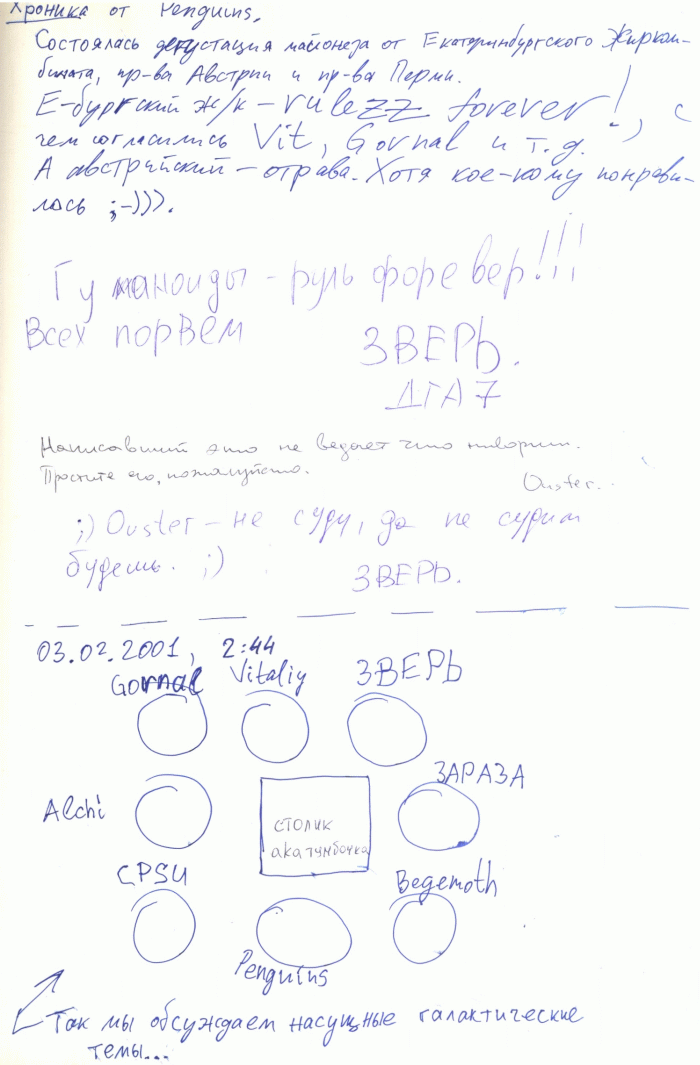 Хроника от Penguins.
Состоялась дегустация майонеза от Екатеринбургского Жирком-
бината, пр-ва Австрии и пр-ва Перми.
Е-бургский ж/к - rulezz forever!, с
чем согласились Vit, Gornal и т.д.
А австрийский - отрава. Хотя кое-кому понрави-
лась ;-))).
Гуманоиды - руль форевер!!!
Всех порвём
ЗВЕРЬ.
ДГА7
Написавший это не ведает что творит.
Простите его, пожалуйста.
Ouster..
;) Ouster - не суди, да не судим
будешь. ;)
ЗВЕРЬ.
03.02.2001, 2:44
Gornal Vitaliy ЗВЕРЬ
Alchi ЗАРАЗА
столик
aka тумбочка
CPSU Begemoth
Penguins
Так мы обсуждаем насущные галактические
темы...